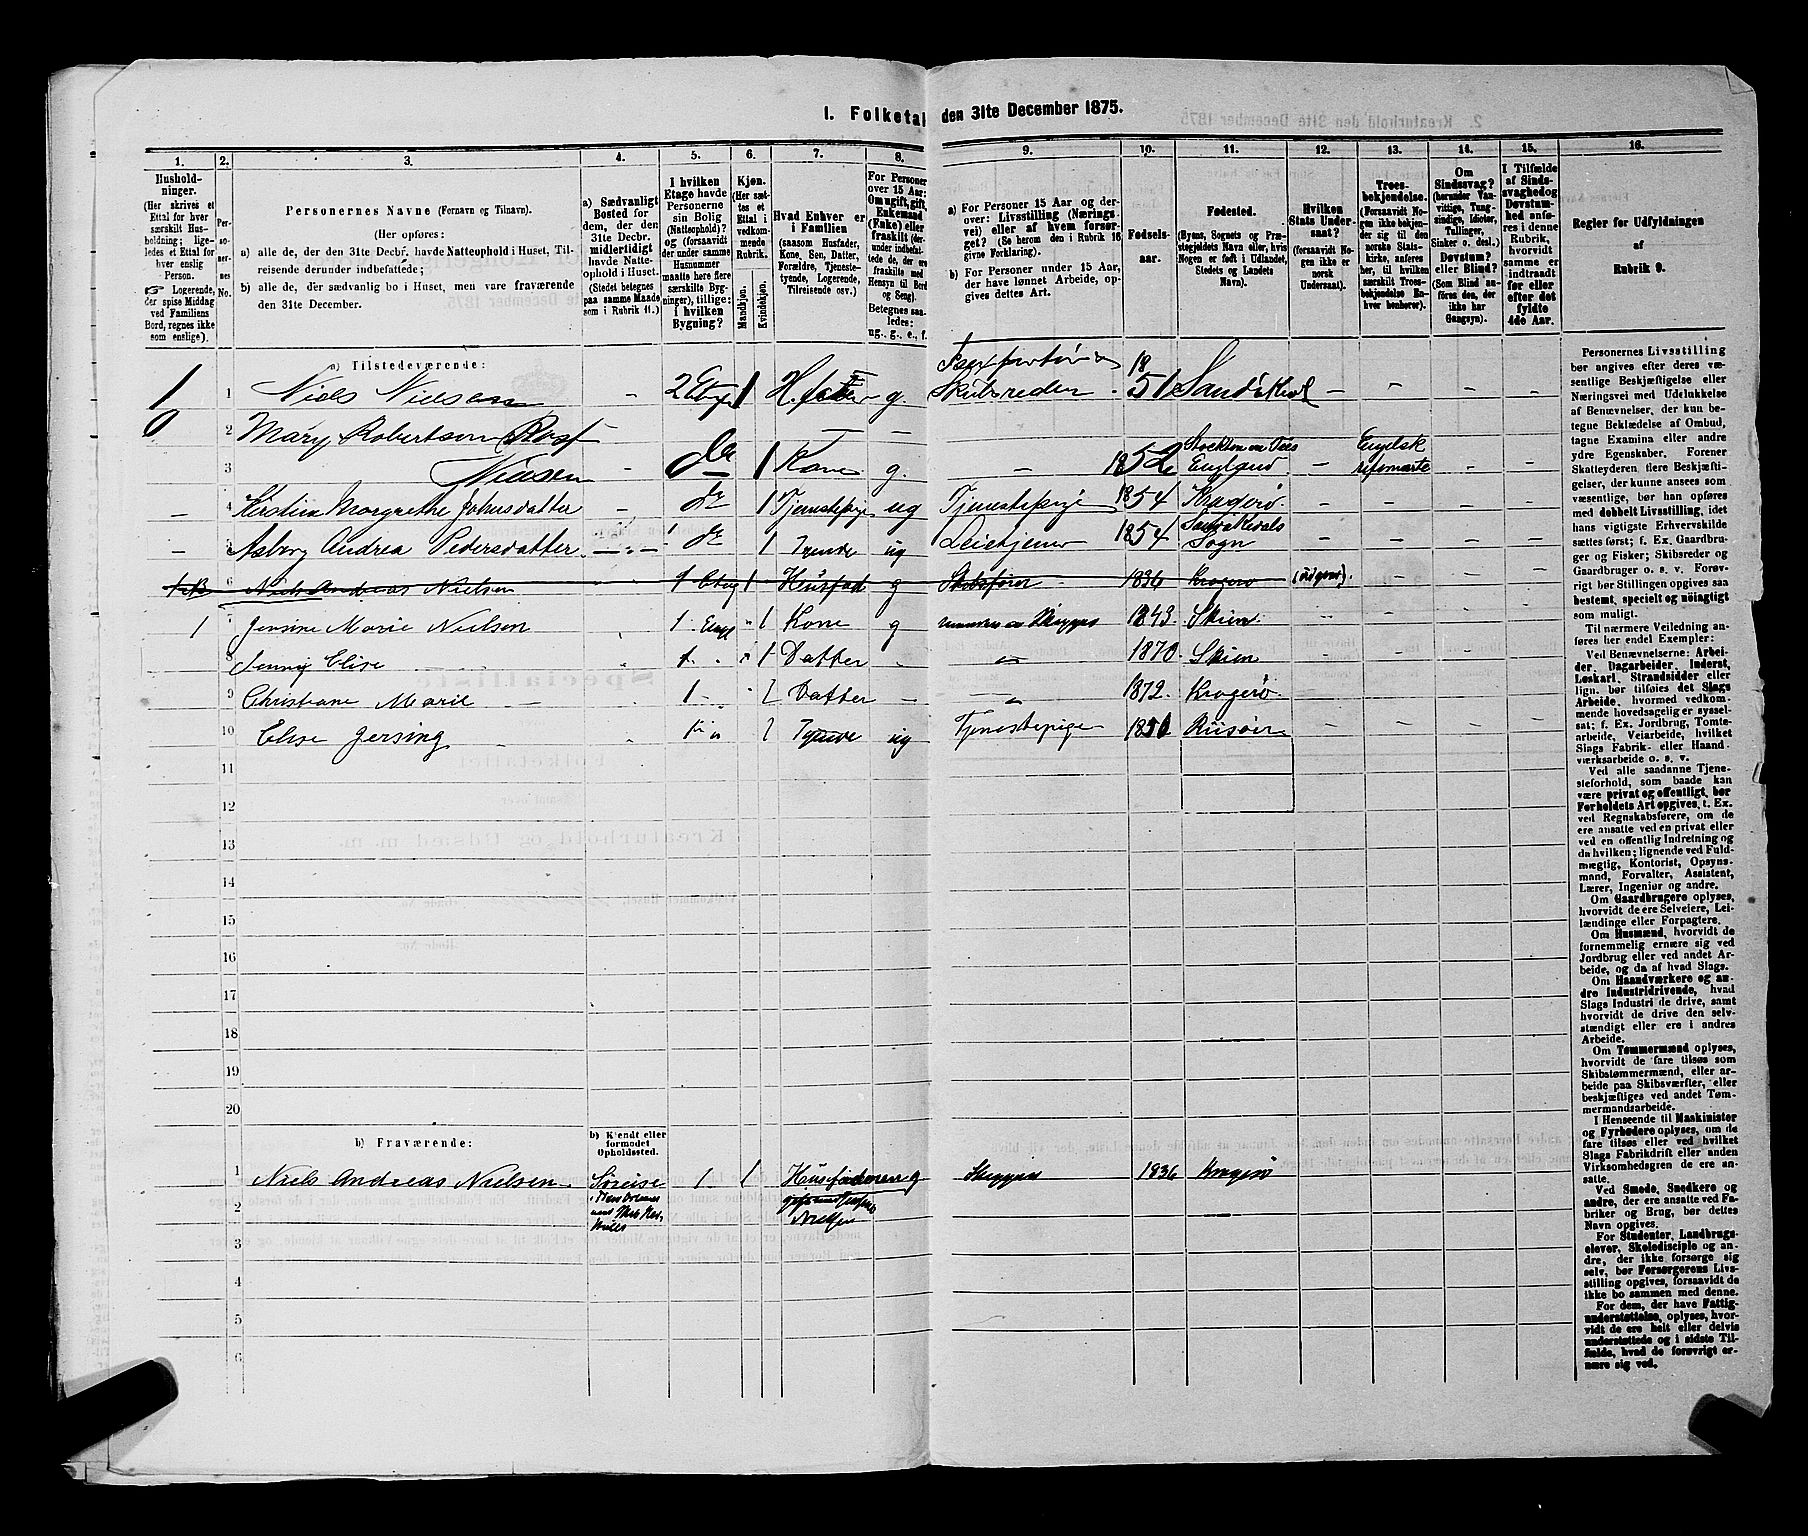 I. Folketal den 31te December 1875.
1. 2. 3. 4. 5. 6. 7. 8. 9. 10. 11. 12. 13. 14. 15. 16.
Husholdninger.
(Her skrives et
Ettal for hver
særskilt Husholdning;
ligeledes et Ettal for
hver enslig
Person.
☞ Logerende,
der spise Middag
ved Familiens
Bord, regnes ikke
som enslige).
Personernes No.
Personernes Navne (Fornavn og Tilnavn).
(Her opføres:
a) alle de, der den 31te Decbr. havde Natteophold i Huset, Tilreisende
derunder indbefattede;
b) alle de, der sædvanlig bo i Huset, men vare fraværende
den 31te December.
a) Sædvanligt
Bosted for
dem, der den
31te Decbr.
midlertidigt
havde Natteophold
i Huset.
(Stedet betegnes
paa samme Maade
som i Rubrik 11.)
I hvilken
Etage havde
Personerne
sin Bolig
(Natteophold)?
og (forsaavidt
der under samme
Husnummer
maatte here flere
særskilte Bygninger),
tillige:
i hvilken
Bygning?
Kjøn.
(Her sættes
et
Ettal i
vedkommende
Rubrik.
Mandkjøn.
Kvindekjøn.
Hvad Enhver er
i Familien
(saasom Husfader,
Kone, Søn, Datter,
Forældre, Tjenestetyende,
Logerende,
Tilreisende osv.)
For Personer
over 15 Aar:
Om ugift, gift,
Enkemand
(Enke) eller
fraskilt (derunder
indbefattede
de, der ere
fraskilte med
Hensyn til Bord
og Seng).
Betegnes saaledes:
ug., g., e., f.
a) For Personer 15 Aar og derover:
Livsstilling (Næringsvei)
eller af hvem forsørget?
(Se herom den i Rubrik 16
givne Forklaring).
b) For Personer under 15 Aar,
der have lønnet Arbeide, opgives
dettes Art.
Fødselsaar.
Fødested.
(Byens, Sognets og Præstegjeldets
Navn eller, hvis
Nogen er født i Udlandet,
Stedets og Landets
Navn).
Hvilken
Stats Undersaat?
(forsaavidt Nogen
ikke er
norsk
Undersaat).
Troesbekjendelse.
(Forsaavidt Nogen
ikke bekjender
sig til den
norske Statskirke,
anføres
her, til hvilken
særskilt Troesbekjendelse
Enhver
henhører).
Om
Sindssvag?
(herunder Vanvittige,
Tungsindige,
Idioter,
Tullinger,
Sinker o. desl.)
Døvstum?
eller Blind?
(Som Blind anføres
den, der
ikke har
Gangsyn).
I Tilfælde
af Sindssvaghed
og
Døvstumhed
anføres
i denne
Rubrik,
hvorvidt
samme er
indtraadt
før eller
efter det
fyldte
4de Aar.
Regler for Udfyldningen
af
Rubrik 9.
a) Tilstedeværende:
1 1 Niels Nielsen - 2 Etage 1 H.fader g. Skibsreder 18 51 Sandøkedal - - - -
0 2 Mary Robertson - -
3 Nielsen - do 1 Kone g. - 1852 Stockton on Tees England - Engelsk reformerte - -
- 4 Kirstin Margrethe Johnsdatter - do 1 Tjenestepige ug Tjenestepige 1854 Kragerø - - - -
- 5 Asborg Andrea Pedersdatter do 1 Tyende ug 1854 Sandøkedals Sogn - - - -
6 Niels Andreas Nielsen 1 Etag 1 Husfad g Skibsfører 1836 Kragerø
1 7 Jensine Marie Nielsen 1 Etage 1 Kone g 1843 Skien
8 Jenny Elise 1 1 Datter - 1870 Skien
9 Christiane Marie 1 1 Datter - 1872 Kragerø
10 Elise Jersing 1 Tyende ug Tjenestepige Riisøer
11
12
13
14
15
16
17
18
19
20
b) Fraværende:
b) Kjendt eller
formodet
Opholdssted.
1 Niels Andreas Nielsen 1 1 g 1836 Kragerø
2
3
4
5
6
Personernes Livsstilling
bør angives efter deres væsentlige
Beskjæftigelse eller
Næringsvei med Udelukkelse
af Benævnelser, der kun betegne
Beklædelse af Ombud,
tagne Examina eller andre
ydre Egenskaber. Forener
Skatteyderen flere Beskjæftigelser,
der kunne ansees som
væsentlige, bør han opføres
med dobbelt Livsstilling, idet
hans vigtigste Erhvervskilde
sættes først; f. Ex. Gaardbruger
og Fisker; Skibsreder og
Gaardbruger o. s. v. Forøvrigt
bør Stillingen opgives saa
bestemt, specielt og nøiagtigt
som muligt.
Til nærmere Veiledning anføres
her endel Exempler:
Ved Benævnelserne: Arbeider,
Dagarbeider, Inderst,
Løskarl, Strandsidder eller
lign. bør tilføies det Slags
Arbeide, hvormed vedkommende
hovedsagelig er sysselsat;
f. Ex. Jordbrug, Tomtearbeide,
Veiarbeide, hvilket
Slags Fabrik- eller Haandværksarbeide
o. s. v.
Ved alle saadanne Tjenesteforhold,
som baade kan
være privat og offentligt, bør
Forholdets Art opgives, t. Ex.
ved Regnskabsførere, om de
ere ansatte ved en privat eller
ved en offentlig Indretning og
da hvilken; lignende ved Fuldmægtig,
Kontorist, Opsynsmand,
Forvalter, Assistent,
Lærer, Ingeniør og andre.
Om Gaardbrugere oplyses,
hvorvidt de ere Selveiere, Leilændinge
eller Forpagtere.
Om Husmænd, hvorvidt de
fornemmelig ernære sig ved
Jordbrug eller ved andet Arbeide,
og da af hvad Slags.
Om Haandværkere og andre
industridrivende, hvad
Slags Industri de drive, samt
hvorvidt de drive den selvstændigt
eller ere i andres
Arbeide.
Om Tømmermænd oplyses,
hvorvidt de fare tilsøs som
Skibstømmermænd, eller arbeide
paa Skibsværfter, eller
beskjæftiges ved andet Tømmermandsarbeide.
I Henseende til Maskinister
og Fyrbødere oplyses, om de
fare tilsøs eller ved hvilket
Slags Fabrikdrift eller anden
Virksomhedsgren de ere ansatte.
Ved Smede, Snedkere og
andre, der ere ansatte ved Fabriker
og Brug, bør dettes
Navn opgives.
For Studenter, Landbrugselever,
Skoledisciple og andre,
der ikke forsørge sig
selv, bør Forsørgerens Livsstilling
opgives, forsaavidt de
ikke bo sammen med denne.
For dem, der have Fattigunderstøttelse,
oplyses, hvorvidt
de ere helt eller delvis
understøttede og i sidste Tilfælde,
hvad de forøvrigt ernære
sig ved.